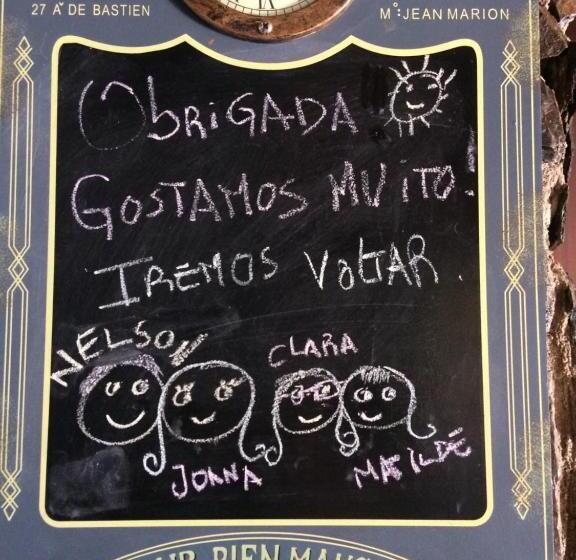 27 A DE BASTIEN
Mº: JEAN MARION
OBRIGADA
GOSTAMOS MUITO!
IREMOS VOLTAR.
NELSON
CLARA
JOANA
MATILDE
BIEN